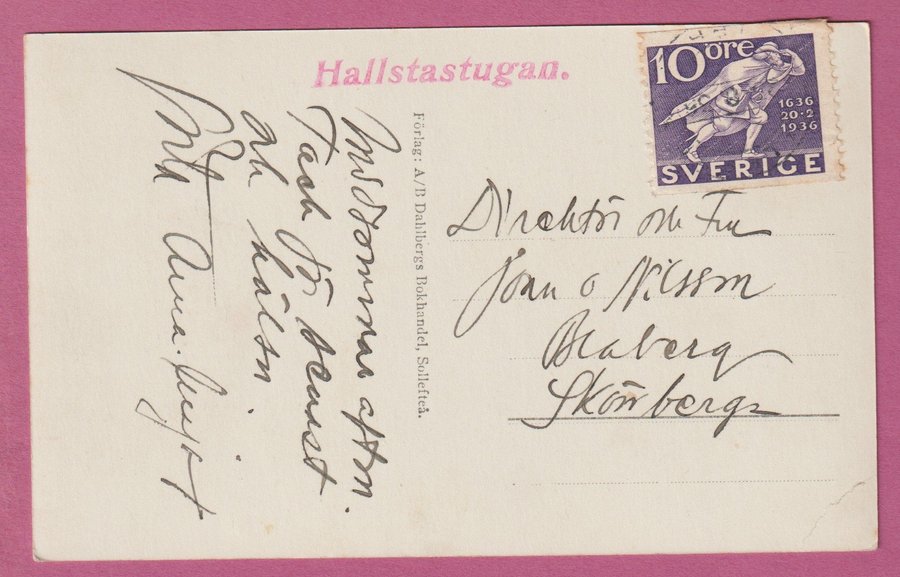 Hallstastugan.
10 öre
1636
20·2
1936
SVERIGE
Midsommar afton.
Tack för senast
och hälsn.
Anna-
Förlag: A/B Dahlbergs Bokhandel, Sollefteå.
Direktör och Fru
John o Nilsson
Skönberga